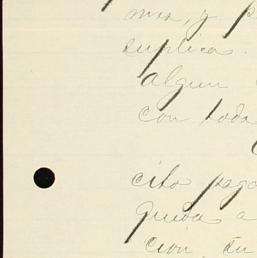 mia, y
suplica.
algun
con toda
cito pago
queda a
cion, su